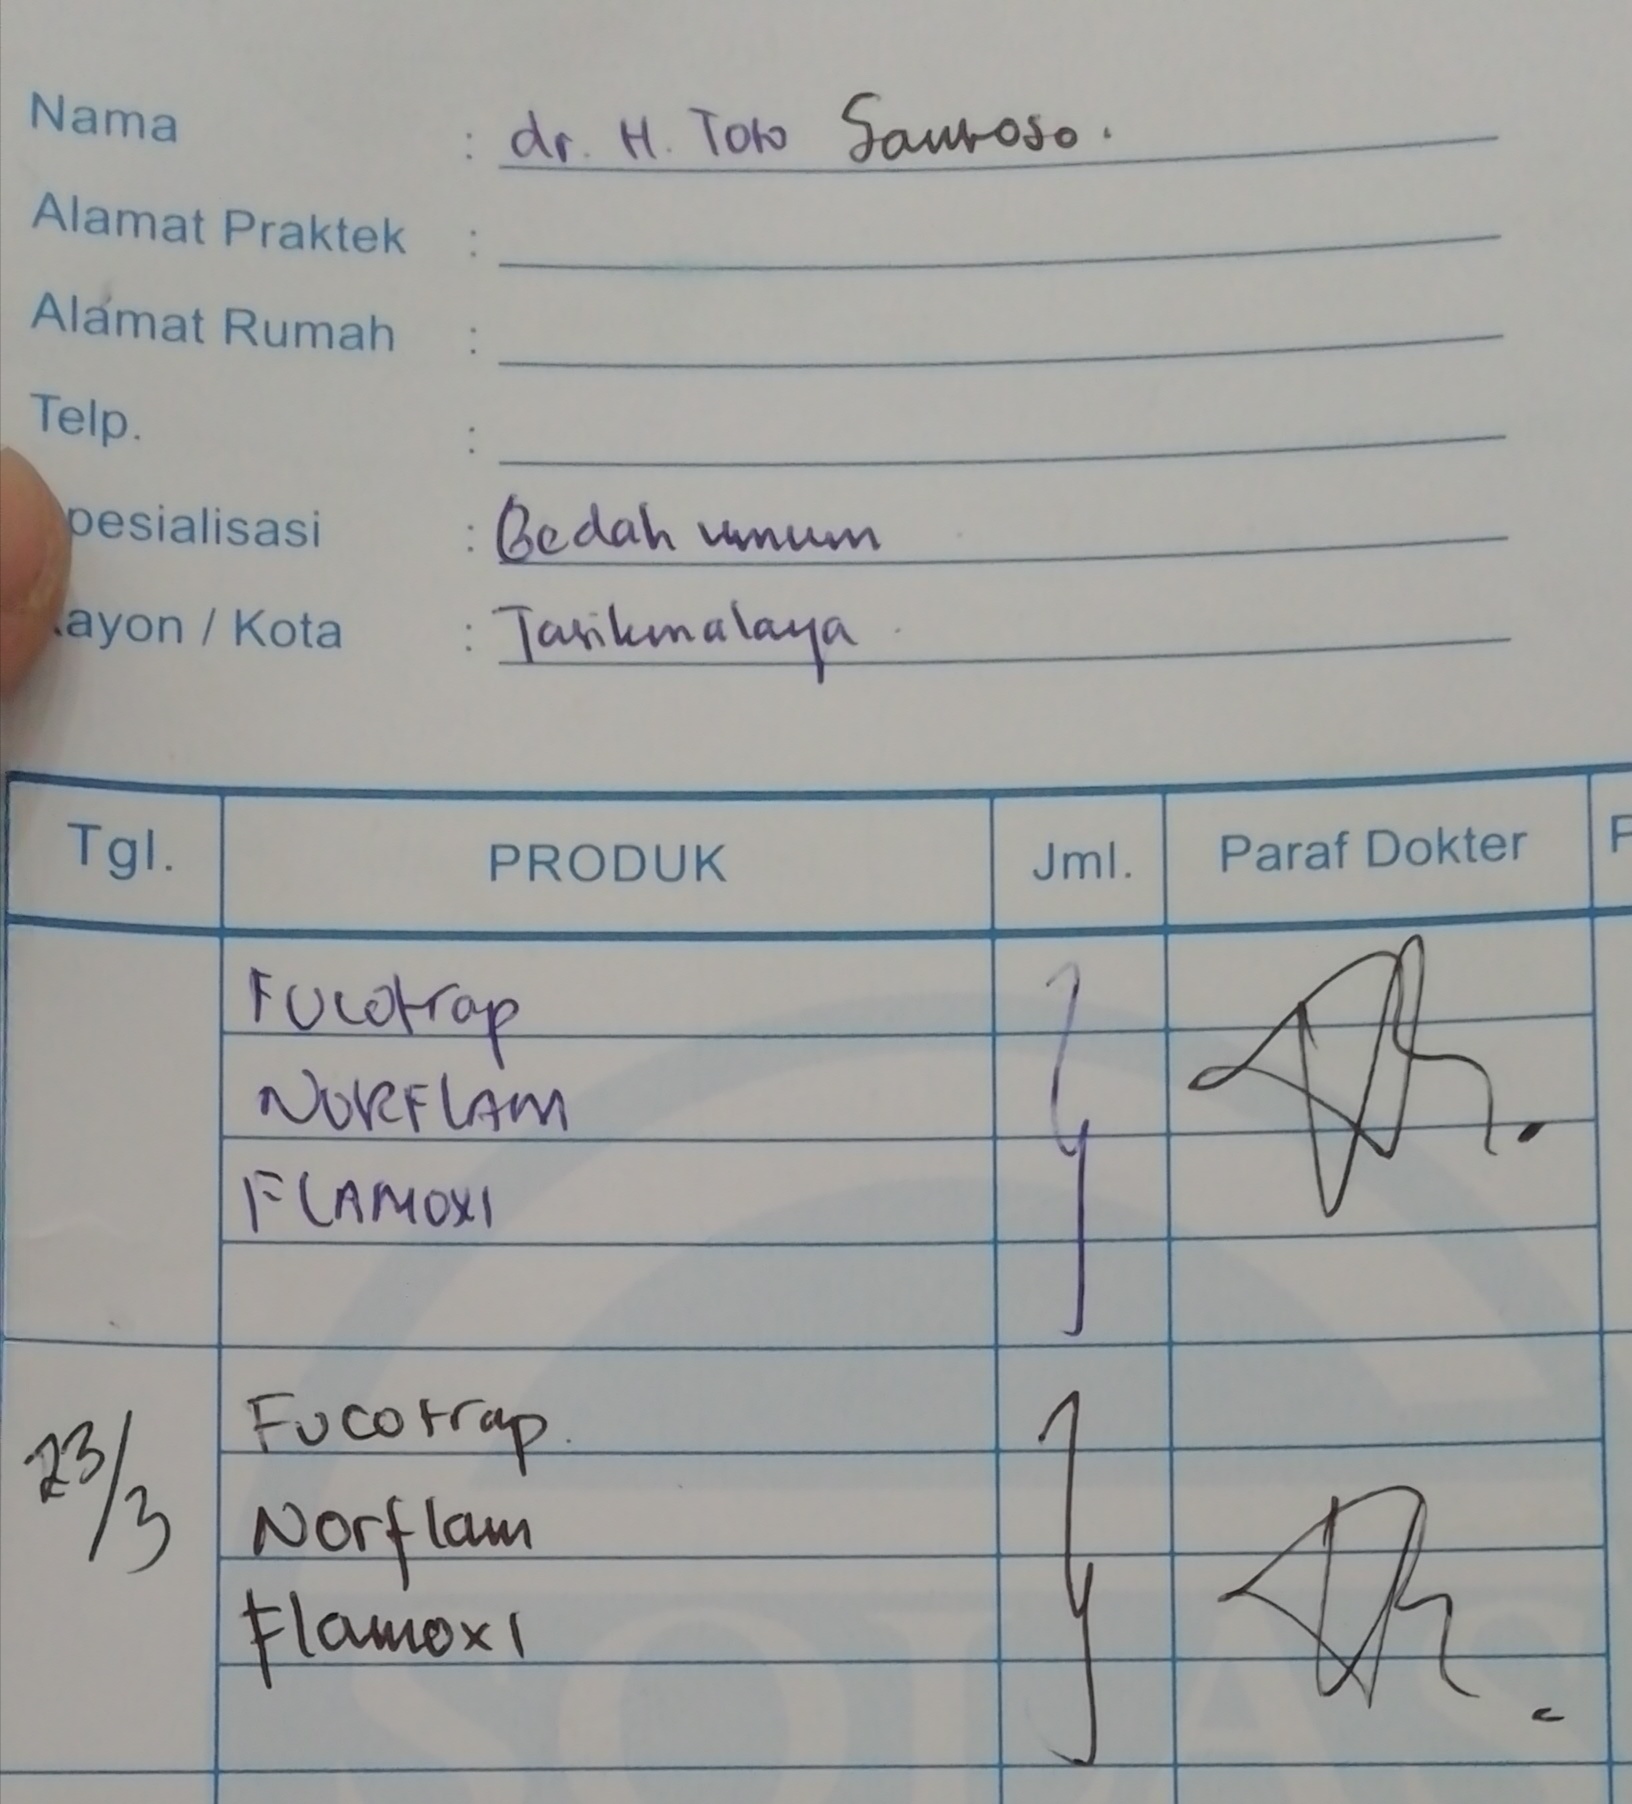 Nama : dr. H. Toto Santoso.
Alamat Praktek :
Alamat Rumah :
Telp. :
pesialisasi : Bedah umum
ayon / Kota : Tasikmalaya
Tgl. PRODUK Jml. Paraf Dokter
Fucotrap
NORFLAM
FLAMOXI
23/3 Fucotrap.
Norflam
Flamoxi